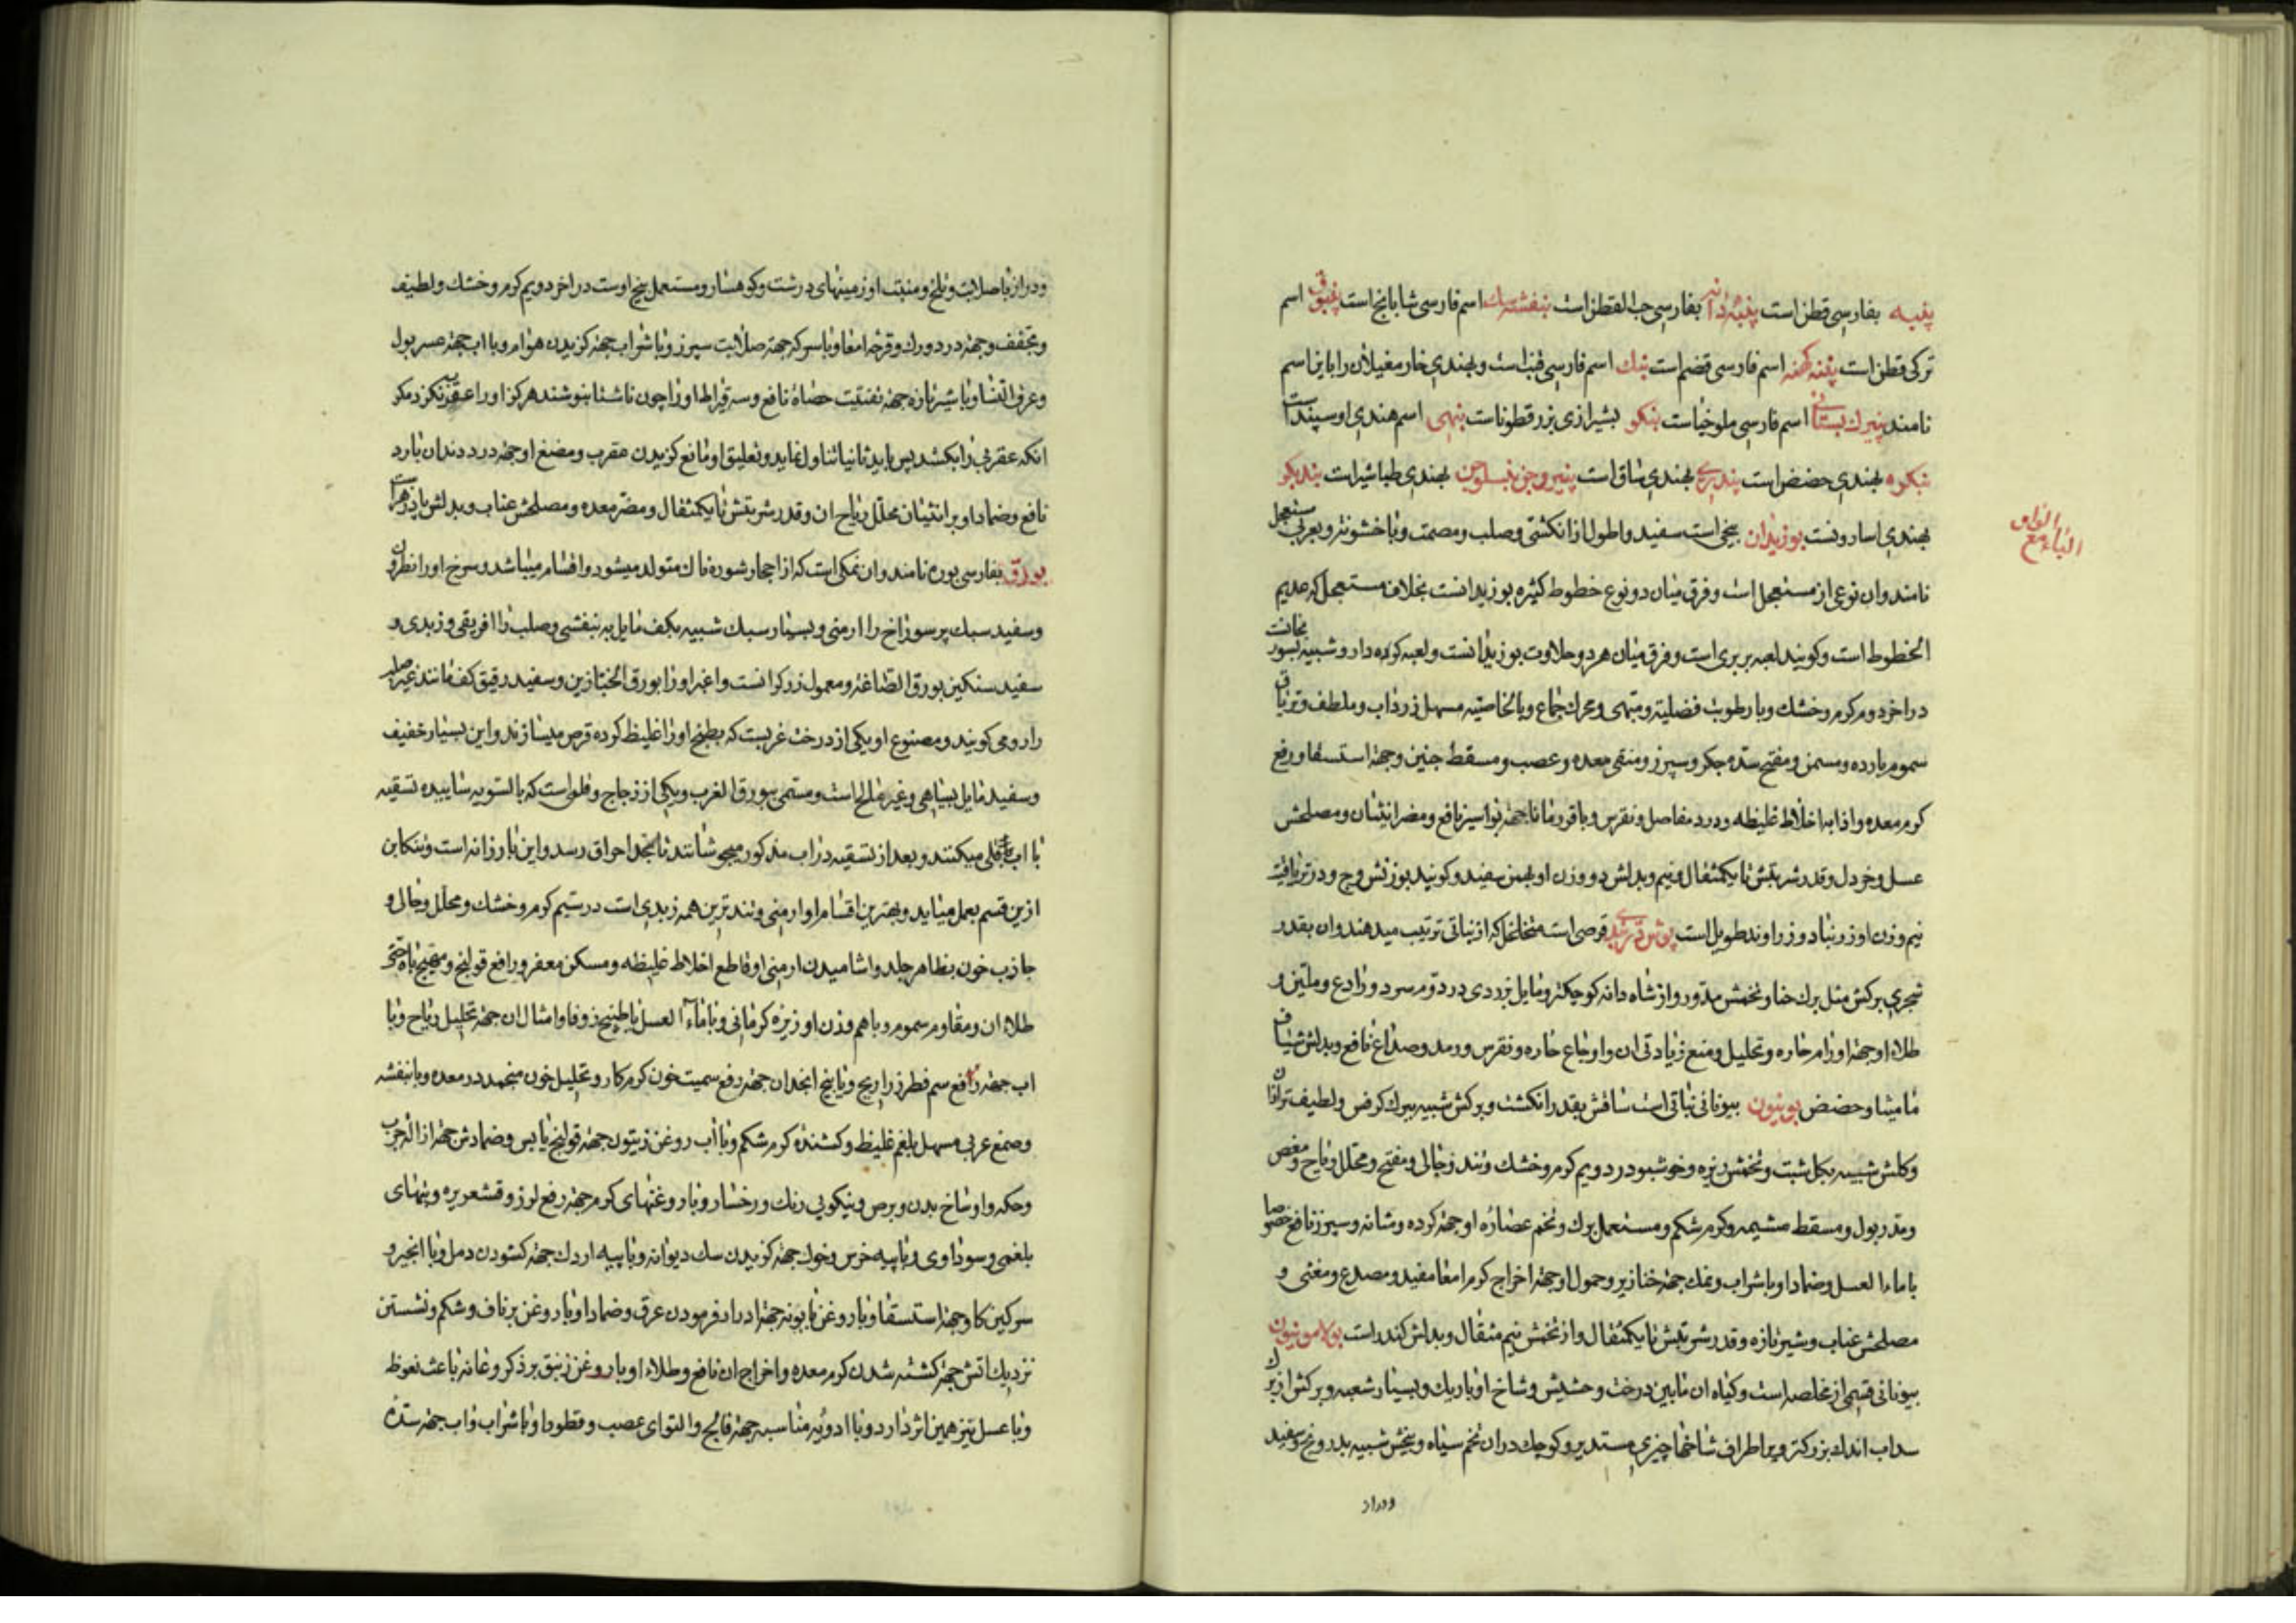 پنبه بفارسی قطن است پنبه دانه بفارسی حب القطن است بنفشه سک اسم فارسی شابانج است پنبق اسم
ترکی قطن است پنبه کهنه اسم فارسی قضم است بنک اسم فارسی قنب است و بهندی خار مغیلان را باین اسم
نامند پنیرک بستانی اسم فارسی ملوخیا است بنکو بشیرازی بزرقطونا است بنهی اسم هندی اوسپید است
بنکره بهندی حضض است بندری بهندی ساق است بنیروجن بنسلوچن بهندی طباشیر است بندیکو
بهندی اسارونست بوزیدان بیخی است سفید و اطول از انکشتی و صلب و مصمت و با خشونت و بعربی مستعجل
الواو
الباء مع
نامند و ان نوعی از مستعجل است و فرق میان دو نوع خطوط کثیره بوزیدانست بخلاف مستعجل که عدیم
الخطوط است و کویند لعبه بربری است و فرق میان هر دو حلاوت بوزیدانست و لعبه کره دار و شبیه بسورنجانست
در اخر دوم کرم و خشک و با رطوبت فضلیة و مبهی و محرک جماع و بالخاصیته مسهل زرداب و ملطف و تریاق
سموم بارده و مسمن و مفتح سده جکر و سپرز و منقی معده و عصب و مسقط جنین و جهة استسقا و رفع
کرم معده و اذابه اخلاط غلیظه و درد مفاصل و نقرس و باقورمانا جهة بواسیر نافع و مضر انثیان و مصلحش
عسل و خردل و قدر شربتش تا یکمثقال و نیم و بدلش دو وزن او بهمن سفید و کویند بوزنش وج و در تریاقیت
نیم وزن او زرنباد و زراوند طویل است بوش دربندی قرصی است متخلخل که از نباتی ترتیب میدهند و ان بقدر
شجری برکش مثل برک حنا و تخمش مدور و از شاه دانه کوچکتر و مایل بزردی در دوم سرد و رادع و ملین و
طلاء او جهة اورام حاره و تحلیل و منع زیادتی ان و اوجاع حاره و نقرس و رمد و صداع نافع و بدلش شیاف
مامیثا و حضض بونیون بیونانی نباتی است ساقش بقدر انکشت و برکش شبیه ببرک کرفس و لطیف تر از ان
و کلش شبیه بکل شبت و تخمش ریزه و خوشبو در دویم کرم و خشک و تند و جالی و مفتح و محلل ریاح و مغص
و مدر بول و مسقط مشیمه و کرم شکم و مستعمل برک و تخم عصاره او جهة کرده و مثانه و سپرز نافع خصوصا
با ماءالعسل و ضماد او با شراب و نمک جهة خنازیر و حمول او جهة اخراج کرم امعا مفید و مصدع و مغثی و
مصلحش عناب و شیر تازه و قدر شربتش تا یکمثقال و از تخمش نیم مثقال و بدلش کندر است بولامونیون
بیونانی قسمی از مخلصه است و کیاه ان مابین درخت و حشیش و شاخ او باریک و بسیار شعبه و برکش از برک
سداب اندک بزرکتر و بر اطراف شاخها چیزی مستدیر و کوچک در ان تخم سیاه و بیخش شبیه بدرونج و سفید
و دراز
و دراز با صلابت و تلخ و منبت او زمینهای درشت و کوهسار و مستعمل بیخ اوست در اخر دویم کرم و خشک و لطیف
و مجفف و جهة درد ورک و قرحه امعا و با سرکه جهة صلابت سپرز و با شراب جهة کزیدن هوام و با اب جهة عسر بول
و عرق النسا و با شیر تازه جهة تفتیت حصاة نافع و سه قیراط او را چون ناشتا بنوشند هرکز او را عقرب نکزد مکر
انکه عقربی را بکشد پس باید ثانیا تناول نماید و تعلیق او مانع کزیدن عقرب و مضغ او جهة درد دندان بارد
نافع و ضماد او بر انثیان محلل ریاح ان و قدر شربتش تا یکمثقال و مضر معده و مصلحش عناب و بدلش پادزهر است
بورق بفارسی بوره نامند و ان نمکی است که از احجار شوره ناک متولد میشود و اقسام میباشد و سرخ او را نطرون
و سفید سبک پر سوراخ را ارمنی و بسیار سبک شبیه بکف مایل به بنفشی و صلب را افریقی و زبدی و
سفید سنکین بورق الصاغه و معمول زرکرانست و اغبر او را بورق الخبازین و سفید رقیق کف مانند غیر صلب
را رومی کویند و مصنوع او یکی از درخت غربست که بطبخ او را غلیظ کرده قرص میسازند و این بسیار خفیف
و سفید مایل بسیاهی و غیر مالح است و مسمی ببورق الغرب و یکی از زجاج و قلی است که بالسویه ساییده تسقیه
با اب قلی میکنند و بعد از تسقیه در اب مذکور میجوشانند تا بحد احراق رسد و این بارزانه است و تنکار ان
ازین قسم بعمل میاید و بهترین اقسام او ارمنی و تندترین همه زبدی است در سیم کرم و خشک و محلل و جالی و
جاذب خون بظاهر جلد و اشامیدن ارمنی او قاطع اخلاط غلیظه و مسکن مغص و رافع قولنج و مهیج باه حتی
طلاء ان و مقاوم سموم و با هم وزن او زیره کرمانی و با ماءالعسل یا طبیخ زوفا و امثال ان جهة تحلیل ریاح و با
اب جهة رفع سم فطر و ذراریح و با بیخ انجدان جهة رفع سمیت خون کرم کاو و تحلیل خون منجمد در معده و با بنفشه
و صمغ عربی مسهل بلغم غلیظ و کشنده کرم شکم و با اب و روغن زیتون جهة قولنج یابس و ضمادش جهة ازاله جرب
و حکه و اوساخ بدن و برص و نیکویی رنک و رخسار و با روغنهای کرم جهة رفع لرز و قشعریره و تبهای
بلغمی و سوداوی و با پیه خرس و خوک جهة کزیدن سک دیوانه و با پیه اردک جهة کشودن دمل و با انجیر و
سرکین کاو جهة استسقا و با روغن بابونه جهة ادرار فرمودن عرق و ضماد او با روغن بر ناف و شکم و نشستن
نزدیک اتش جهة کشته شدن کرم معده و اخراج ان نافع و طلاء او با روغن زنبق بر ذکر و عانه باعث نعوظ
و با عسل نیز همین اثر دارد و با ادویه مناسبه جهة فالج و التوای عصب و قطور او با شراب و اب جهة سده